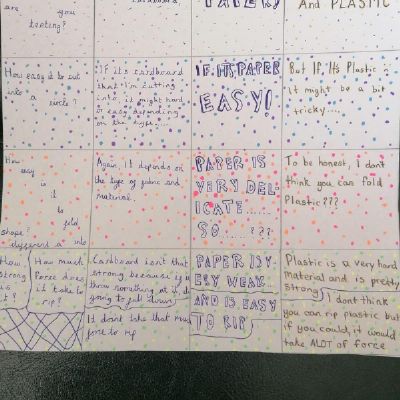 are
you
testing?
cardboard
PAPER,
And PLASTIC
How easy it to cut
into
a circle?
IF its cardboard
that I'm cutting
into, it might hard
or easy depending
on the type.....
IF IT'S PAPER
EASY!
But If, It's Plastic
It might be a bit
tricky....
How
easy
is
it
to
fold
into a
different
shape?
Again, It depends on
the type of fabric and
material.
PAPER IS
VERY DEL-
ICATE......
SO ......???
To be honest, I don't
think you can fold
Plastic???
How
strong
is
it?
How Much
Force does
it take to
rip?
Cardboard isn't that
strong because if you
throw something at it, it's
going to fall down
It don't take that much
force to rip
PAPER IS V-
ERY WEAK
AND IS EASY
TO RIP
Plastic is a very hard
Material and is pretty
strong
I dont think
you can rip plastic but
if you could, it would
take ALOT of force